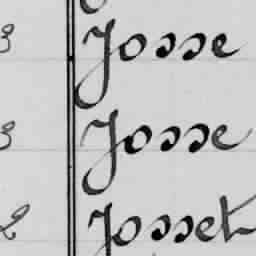 3 Josse
3 Josse
2 Josset